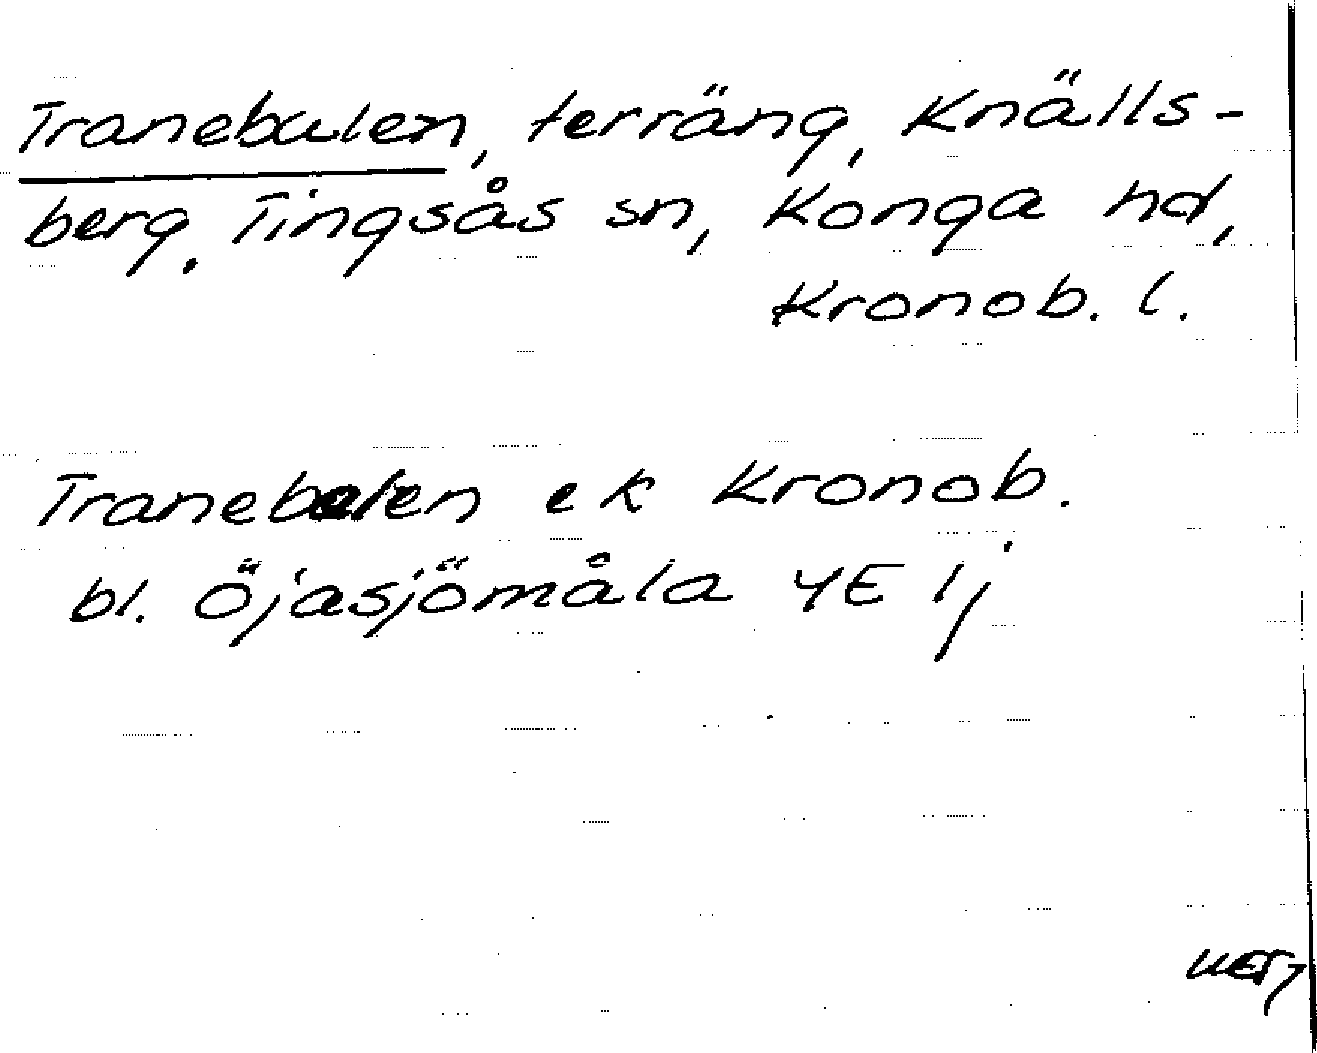 Tranebalen, terräng, Knälls-
berg. Tingsås sn, Konga hd,
Kronob. l.
Tranebalen ek Kronob.
bl. Öjasjömåla 4E 1j